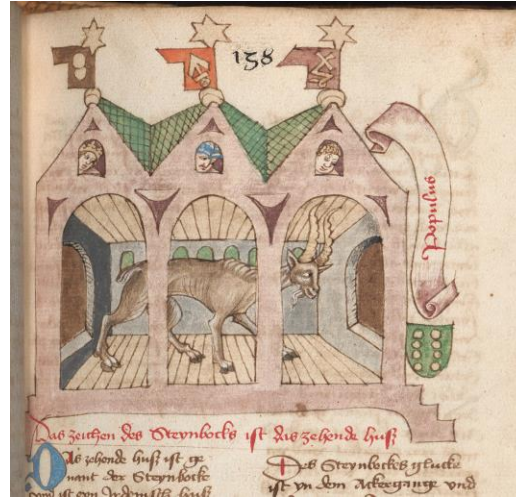 158
Populus
Das zeichen des Steynbocks ist das zehende huß
Das zehende huß ist ge
nant der Steynbock
vnd ist eyn Irdenisch huß
Des Steynbocks gluck
ist yn dem Ackergange vnd